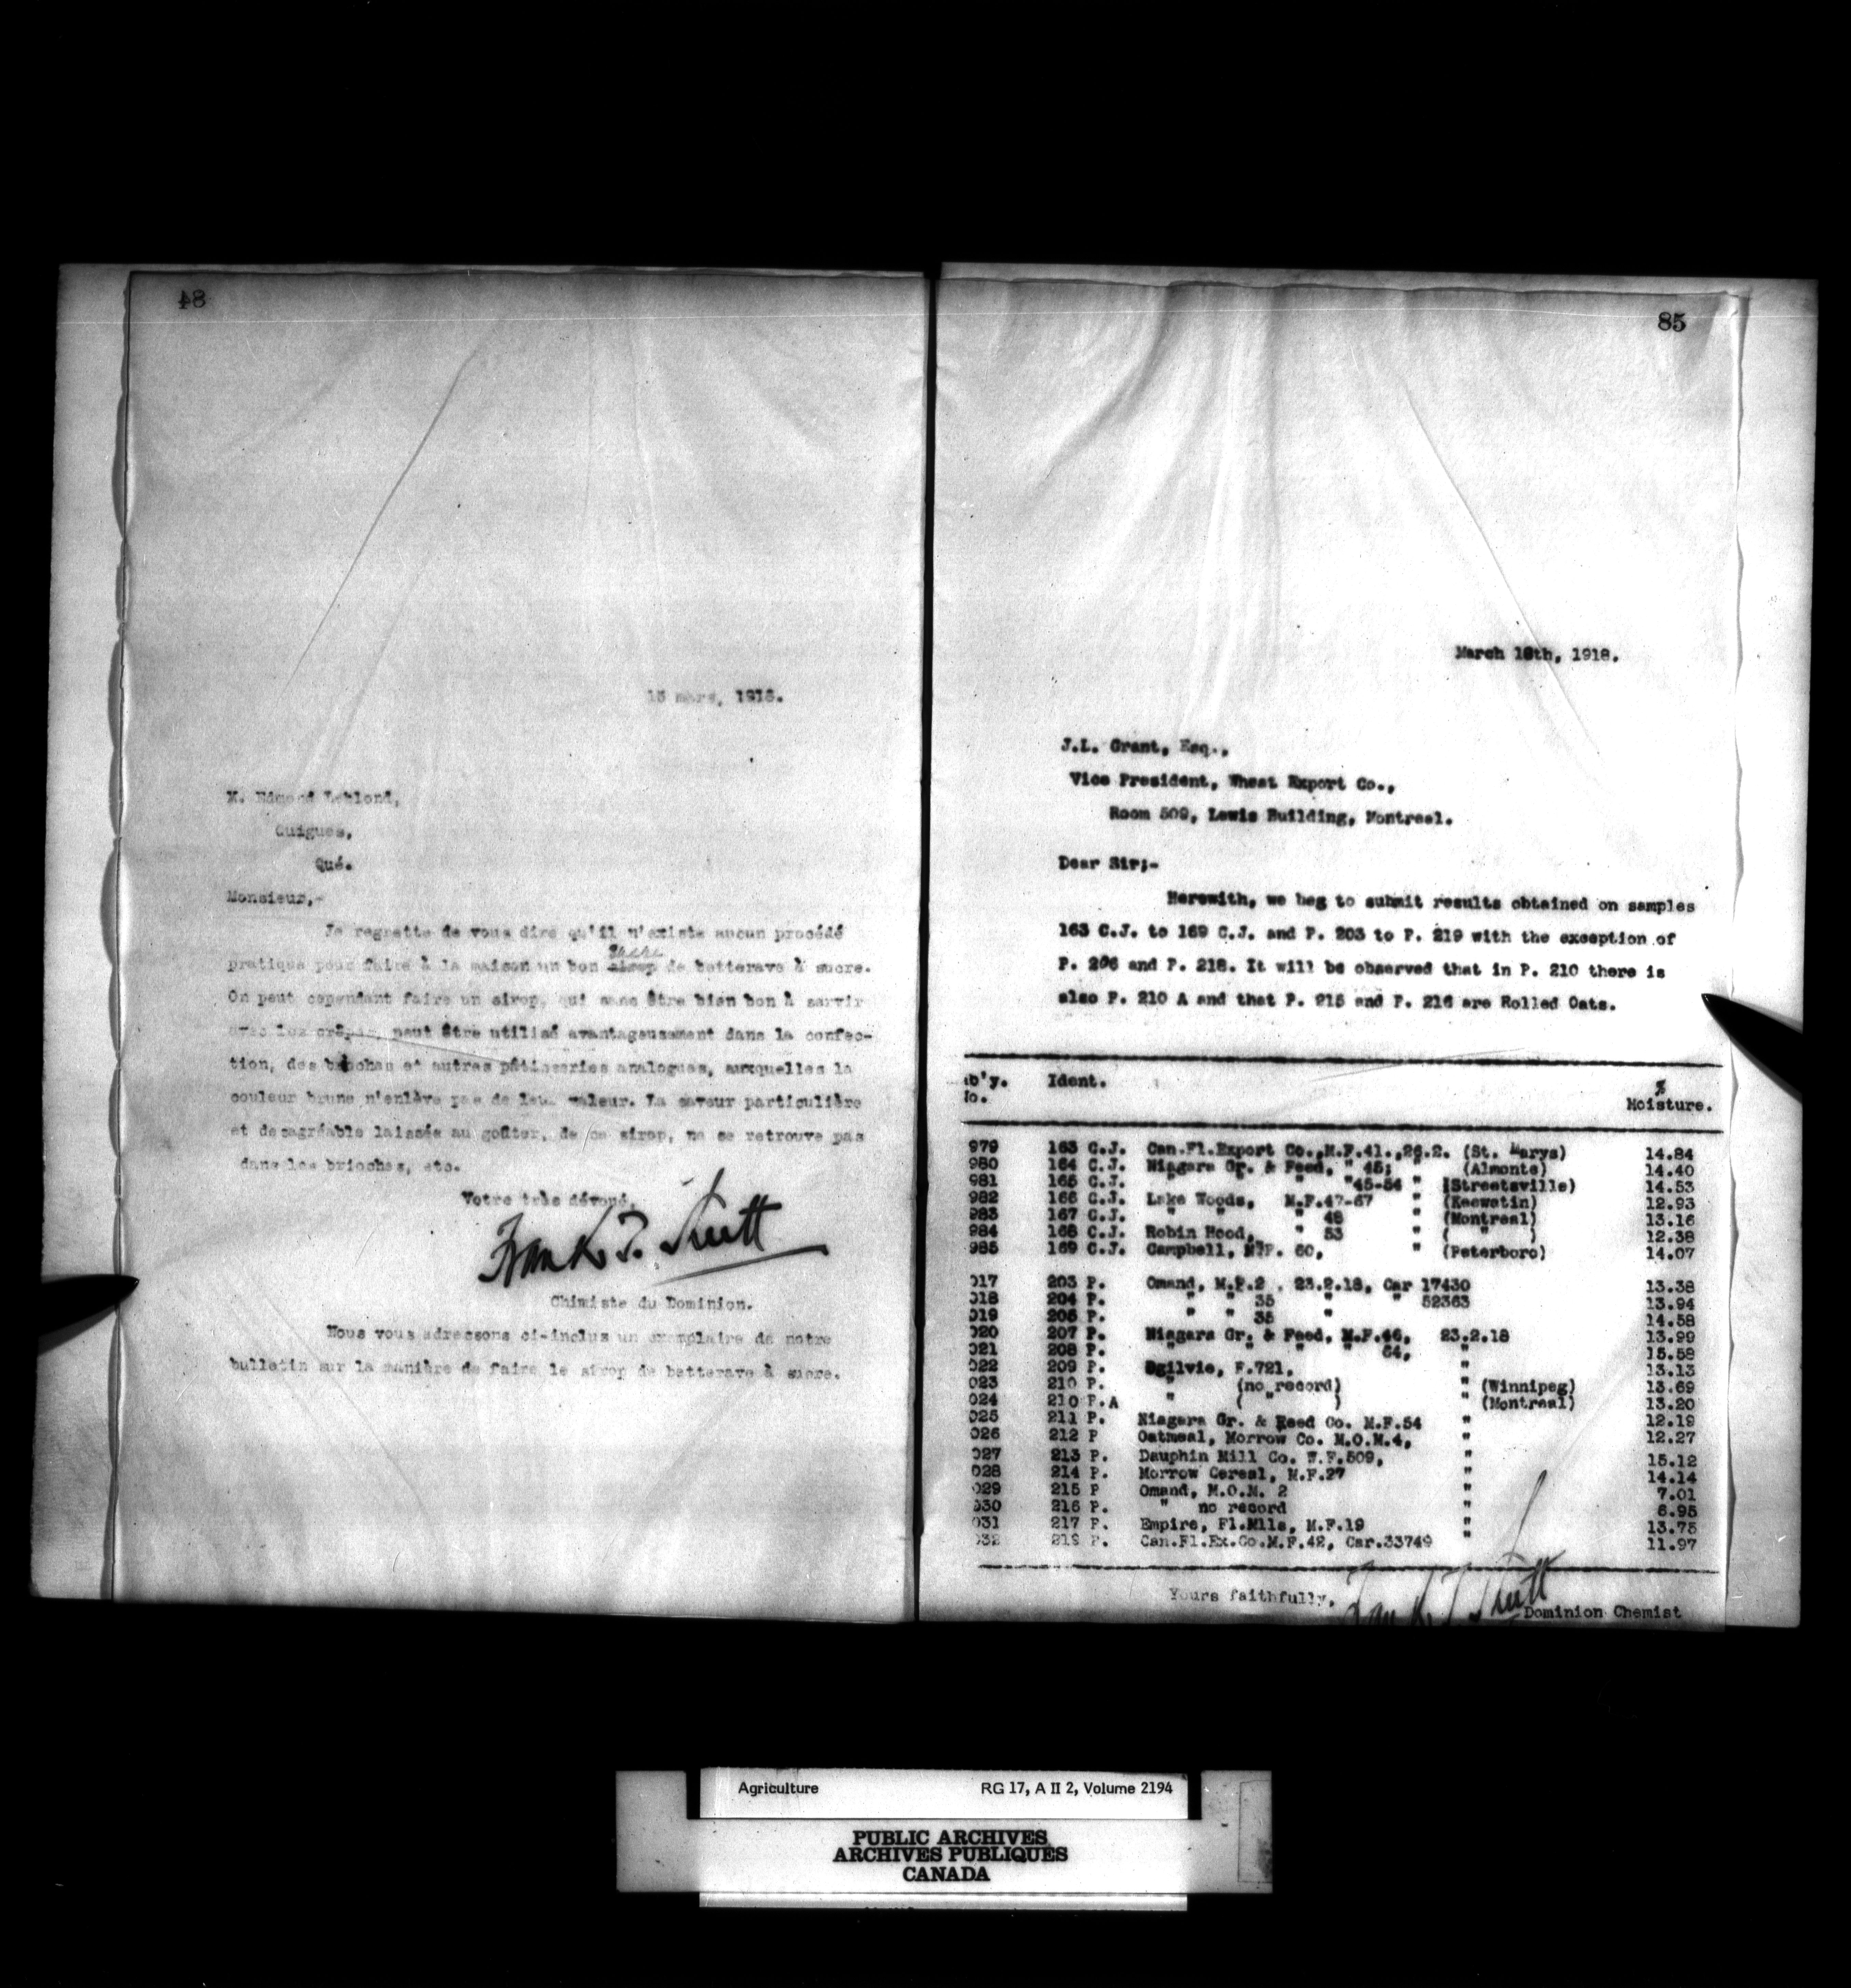 84
15 mars, 1918.
M. Edmond Leblond,
Guigues,
Qué.
Monsieur,-
Je regrette de vous dire qu'il n'existe aucun procédé
sucre
pratique pour faire à la maison un bon sirop de betterave à sucre.
On peut cependant faire un sirop, qui sans être bien bon à servir
avec les crêpes, peut être utilisé avantageusement dans la confec-
tion, des brioches et autres pâtisseries analogues, auxquelles la
couleur brune n'enlève pas de leur valeur. La saveur particulière
et desagréable laissée au goûter, de ce sirop, ne se retrouve pas
dans les brioches, etc.
Votre très dévoué,
Frank T. Shutt
Chimiste du Dominion.
Nous vous adressons ci-inclus un exemplaire de notre
bulletin sur la manière de faire le sirop de betterave à sucre.
85
March 18th, 1918.
J.L. Grant, Esq.,
Vice President, Wheat Export Co.,
Room 509, Lewis Building, Montreal.
Dear Sir;-
Herewith, we beg to submit results obtained on samples
163 C.J. to 169 C.J. and P. 203 to P. 219 with the exception of
P. 206 and P. 218. It will be observed that in P. 210 there is
also P. 210 A and that P. 215 and P. 216 are Rolled Oats.
ab'y. Ident. %
No. Moisture.
979 163 C.J. Can.Fl.Export Co.,M.F.41.,26.2. (St. Marys) 14.84
980 164 C.J. Niagara Gr. & Feed, " 45; " (Almonte) 14.40
981 165 C.J. " " " "45-54 " (Streetsville) 14.53
982 166 C.J. Lake Woods, M.F.47-67 " (Keewatin) 12.93
983 167 C.J. " " " 48 " (Montreal) 13.16
984 168 C.J. Robin Hood, " 53 " ( " ) 12.38
985 169 C.J. Campbell, M.F. 60, " (Peterboro) 14.07
017 203 P. Omand, M.F.2 . 23.2.18, Car 17430 13.38
018 204 P. " " 35 " " 52363 13.94
019 205 P. " " 35 " 14.58
020 207 P. Niagara Gr. & Feed, M.F.46, 23.2.18 13.99
021 208 P. " " " " 64, " 15.58
022 209 P. Ogilvie, F.721, " 13.13
023 210 P. " (no record) " (Winnipeg) 13.69
024 210 P.A " ( " ) " (Montreal) 13.20
025 211 P. Niagara Gr. & Feed Co. M.F.54 " 12.19
026 212 P Oatmeal, Morrow Co. M.O.M.4, " 12.27
027 213 P. Dauphin Mill Co. W.F.509, " 15.12
028 214 P. Morrow Cereal, M.F.27 " 14.14
029 215 P Omand, M.O.M. 2 " 7.01
030 216 P. " no record " 6.95
031 217 P. Empire, Fl.Mlls, M.F.19 " 13.75
032 219 P. Can.Fl.Ex.Co.M.F.42, Car.33749 " 11.97
Yours faithfully,
Frank T. Shutt
Dominion Chemist
Agriculture RG 17, A II 2, Volume 2194
PUBLIC ARCHIVES
ARCHIVES PUBLIQUES
CANADA